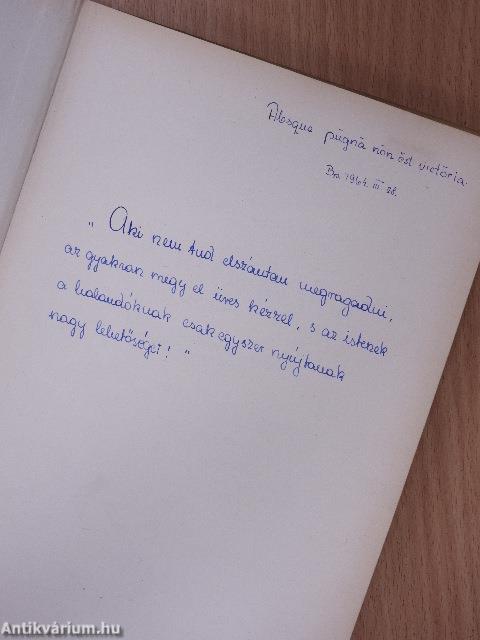 Absque púgná nón ést victória.
Bp. 1964. III. 28.
„Aki nem tud elszántan megragadni,
az gyakran megy el üres kézzel, s az istenek
a halandóknak csak egyszer nyújtanak
nagy lehetőséget!"
Antikvárium.hu